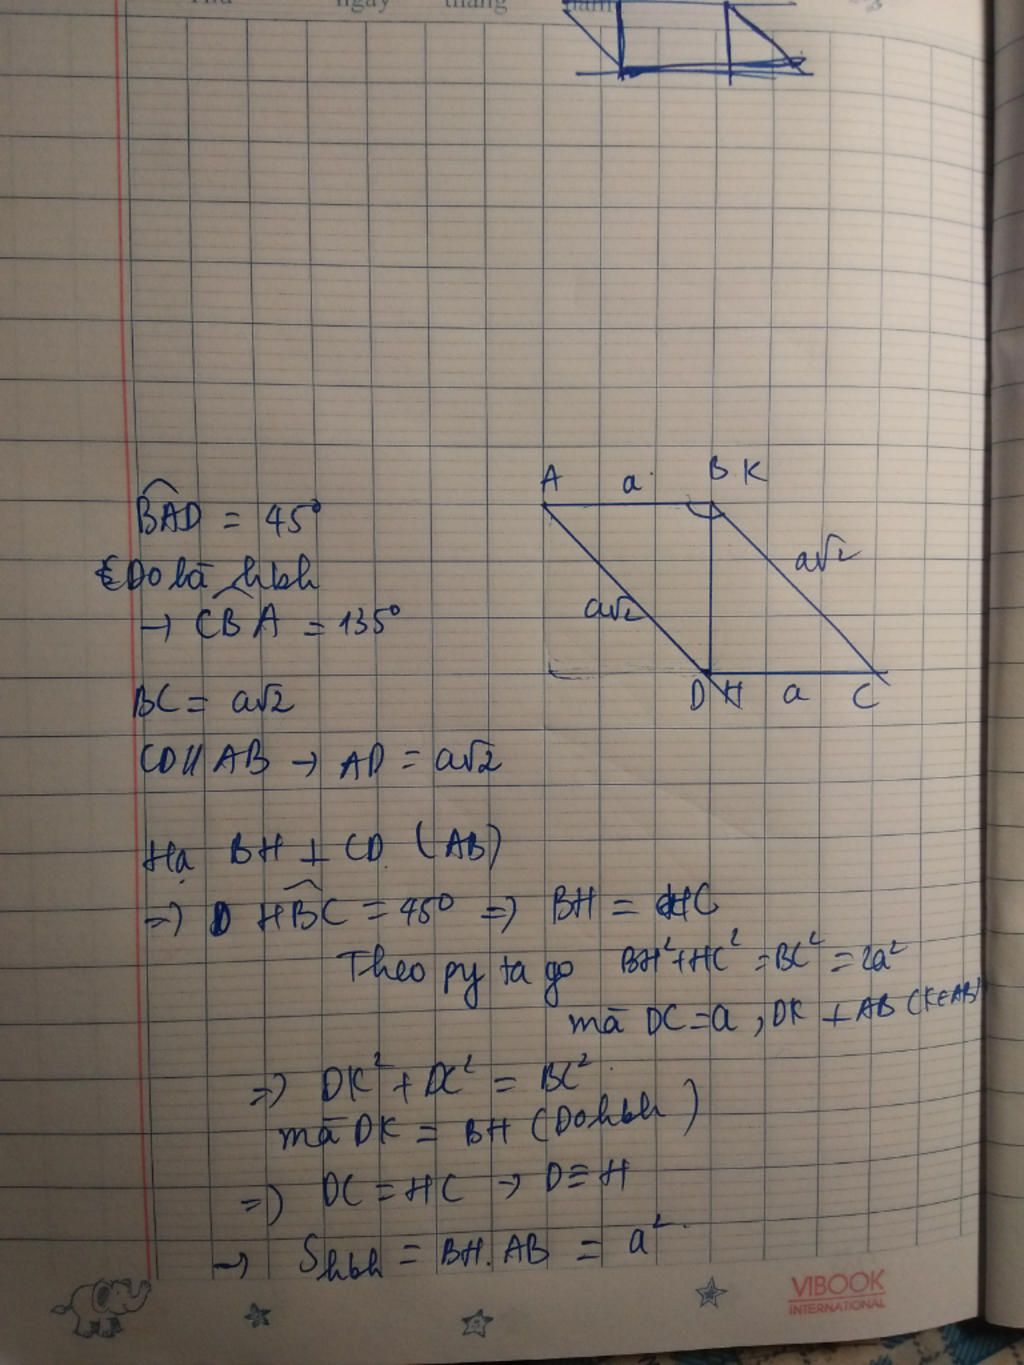 Thứ ngày tháng năm
A a B K
a√2
a√2
D H a C
BAD = 45°
Do là hbh
→ CBA = 135°
BC = a√2
CD // AB → AD = a√2
Hạ BH ⊥ CD (AB)
=> HBC = 45° => BH = HC
Theo py ta go BH² + HC² = BC² = 2a²
mà DC = a, DK ⊥ AB (K∈AB)
=> DK² + DC² = BC²
mà DK = BH (Do hbh)
=> DC = HC → D ≡ H
→ Shbh = BH. AB = a²
VIBOOK
INTERNATIONAL